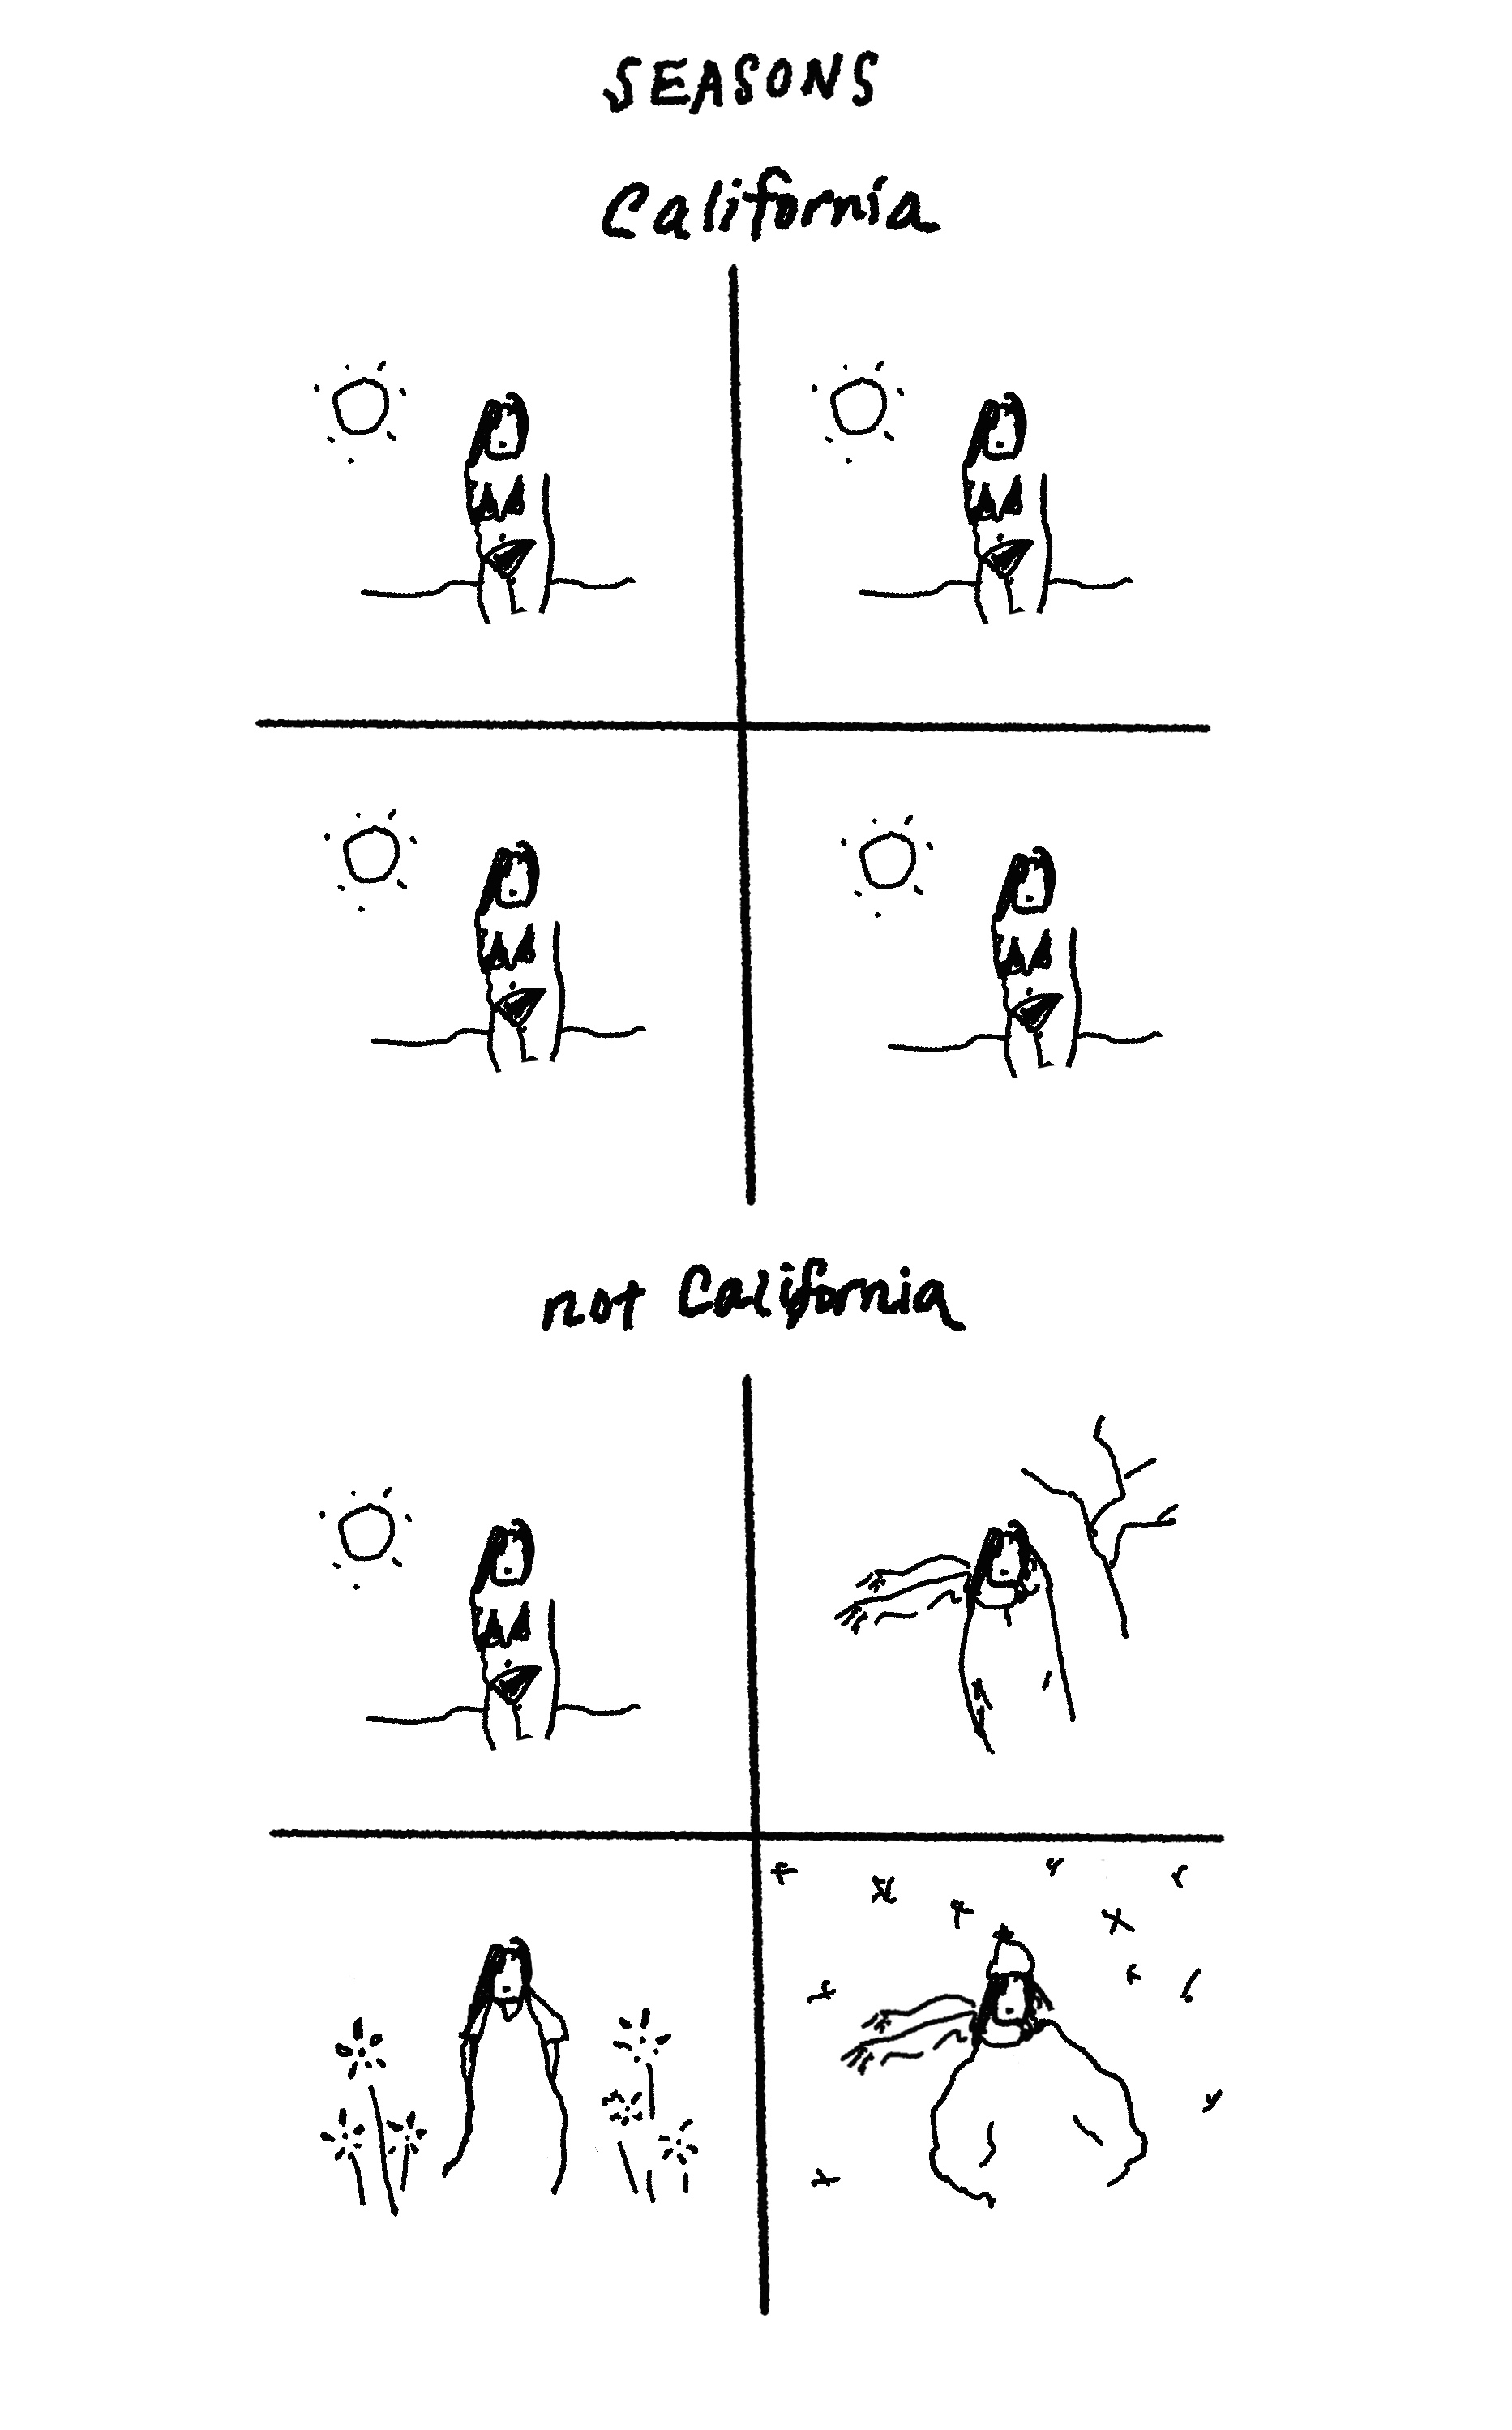 SEASONS
California
not California